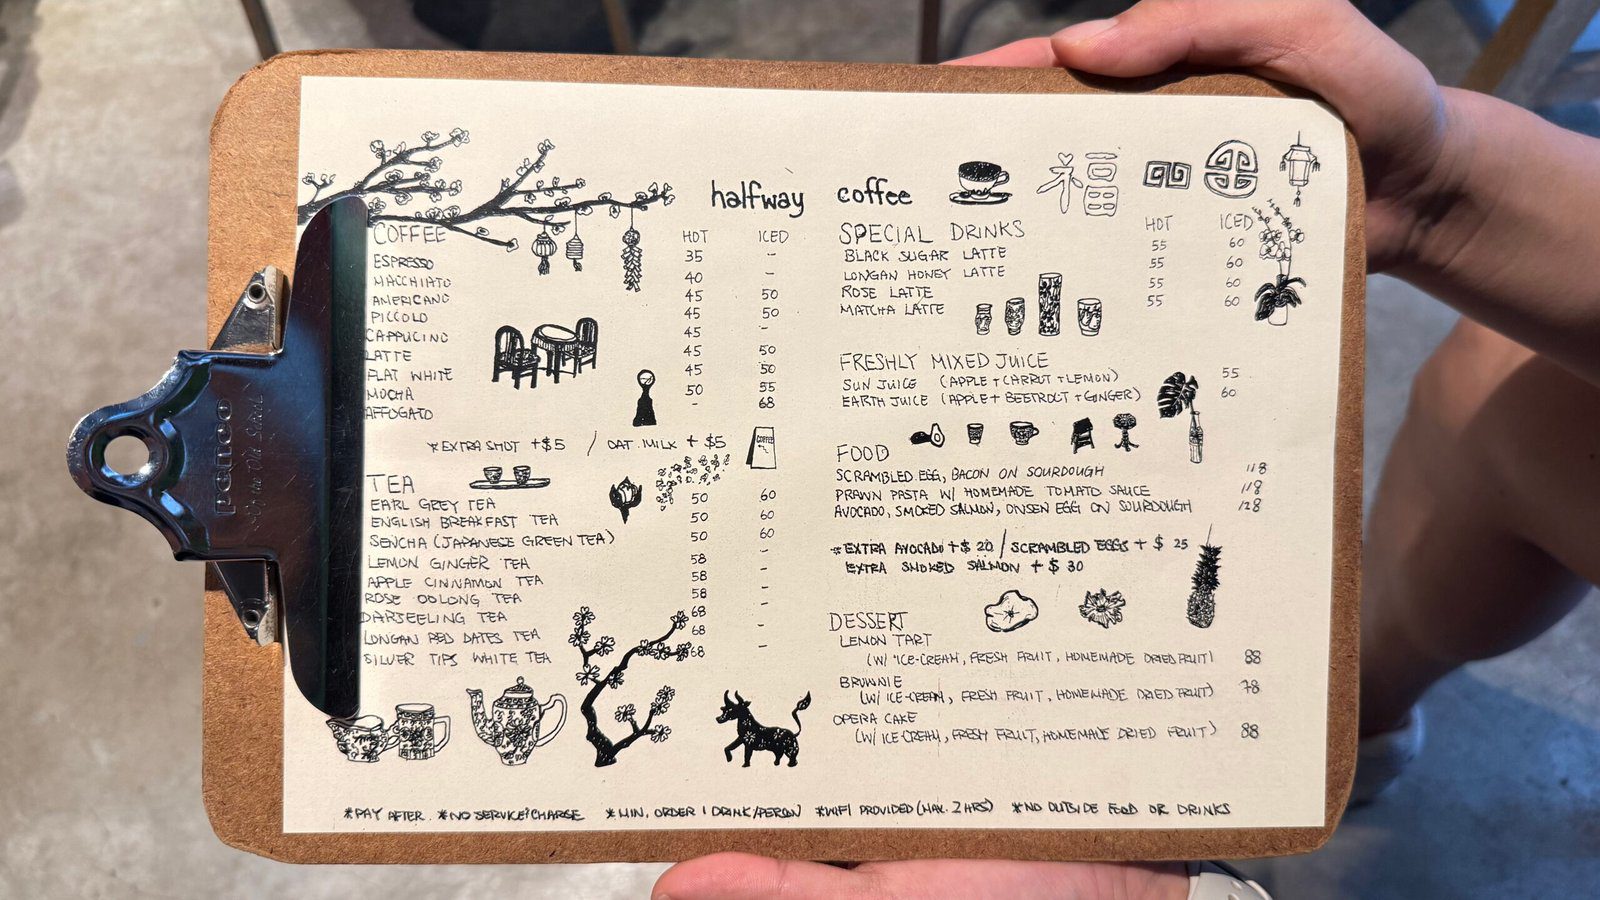 halfway coffee
福
COFFEE HOT ICED
ESPRESSO 35 -
MACCHIATO 40 -
AMERICANO 45 50
PICCOLO 45 50
CAPPUCINO 45 -
LATTE 45 50
FLAT WHITE 45 50
MOCHA 50 55
AFFOGATO - 68
*EXTRA SHOT +$5 / OAT MILK + $5
COFFEE
TEA
EARL GREY TEA 50 60
ENGLISH BREAKFAST TEA 50 60
SENCHA (JAPANESE GREEN TEA) 50 60
LEMON GINGER TEA 58 -
APPLE CINNAMON TEA 58 -
ROSE OOLONG TEA 58 -
DARJEELING TEA 68 -
LONGAN RED DATES TEA 68 -
SILVER TIPS WHITE TEA 68 -
SPECIAL DRINKS HOT ICED
BLACK SUGAR LATTE 55 60
LONGAN HONEY LATTE 55 60
ROSE LATTE 55 60
MATCHA LATTE 55 60
FRESHLY MIXED JUICE
SUN JUICE (APPLE + CARROT + LEMON) 55
EARTH JUICE (APPLE + BEETROOT + GINGER) 60
FOOD
SCRAMBLED EGG, BACON ON SOURDOUGH 118
PRAWN PASTA W/ HOMEMADE TOMATO SAUCE 118
AVOCADO, SMOKED SALMON, ONSEN EGG ON SOURDOUGH 128
*EXTRA AVOCADO +$ 20 / SCRAMBLED EGGS + $ 25
EXTRA SMOKED SALMON + $ 30
DESSERT
LEMON TART
(W/ ICE-CREAM, FRESH FRUIT, HOMEMADE DRIED FRUIT) 88
BROWNIE
(W/ ICE-CREAM, FRESH FRUIT, HOMEMADE DRIED FRUIT) 78
OPERA CAKE
(W/ ICE-CREAM, FRESH FRUIT, HOMEMADE DRIED FRUIT) 88
*PAY AFTER. *NO SERVICE CHARGE *MIN. ORDER 1 DRINK/PERSON *WIFI PROVIDED (MAX. 2 HRS) *NO OUTSIDE FOOD OR DRINKS
penco